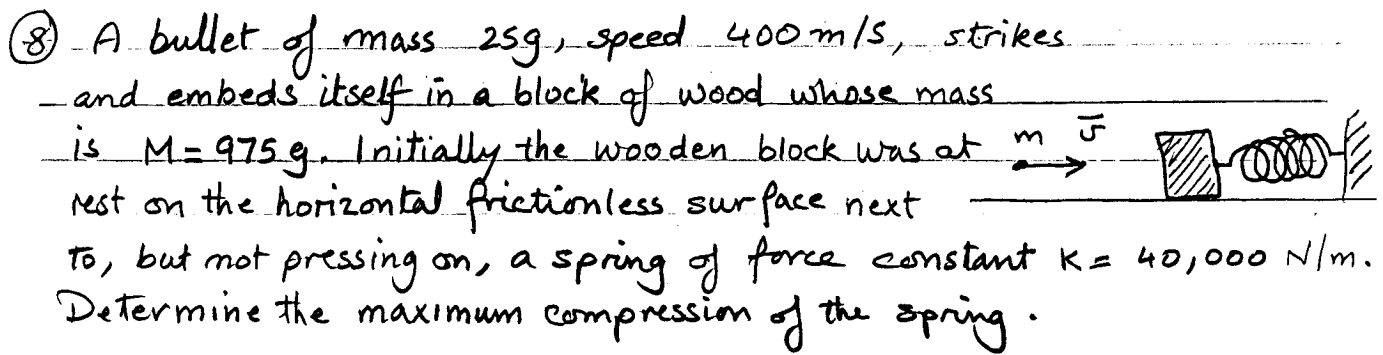 ⑧ A bullet of mass 25g, speed 400 m/s, strikes
and embeds itself in a block of wood whose mass
is M = 975 g. Initially the wooden block was at
m v̄
rest on the horizontal frictionless surface next
to, but not pressing on, a spring of force constant K = 40,000 N/m.
Determine the maximum compression of the spring.